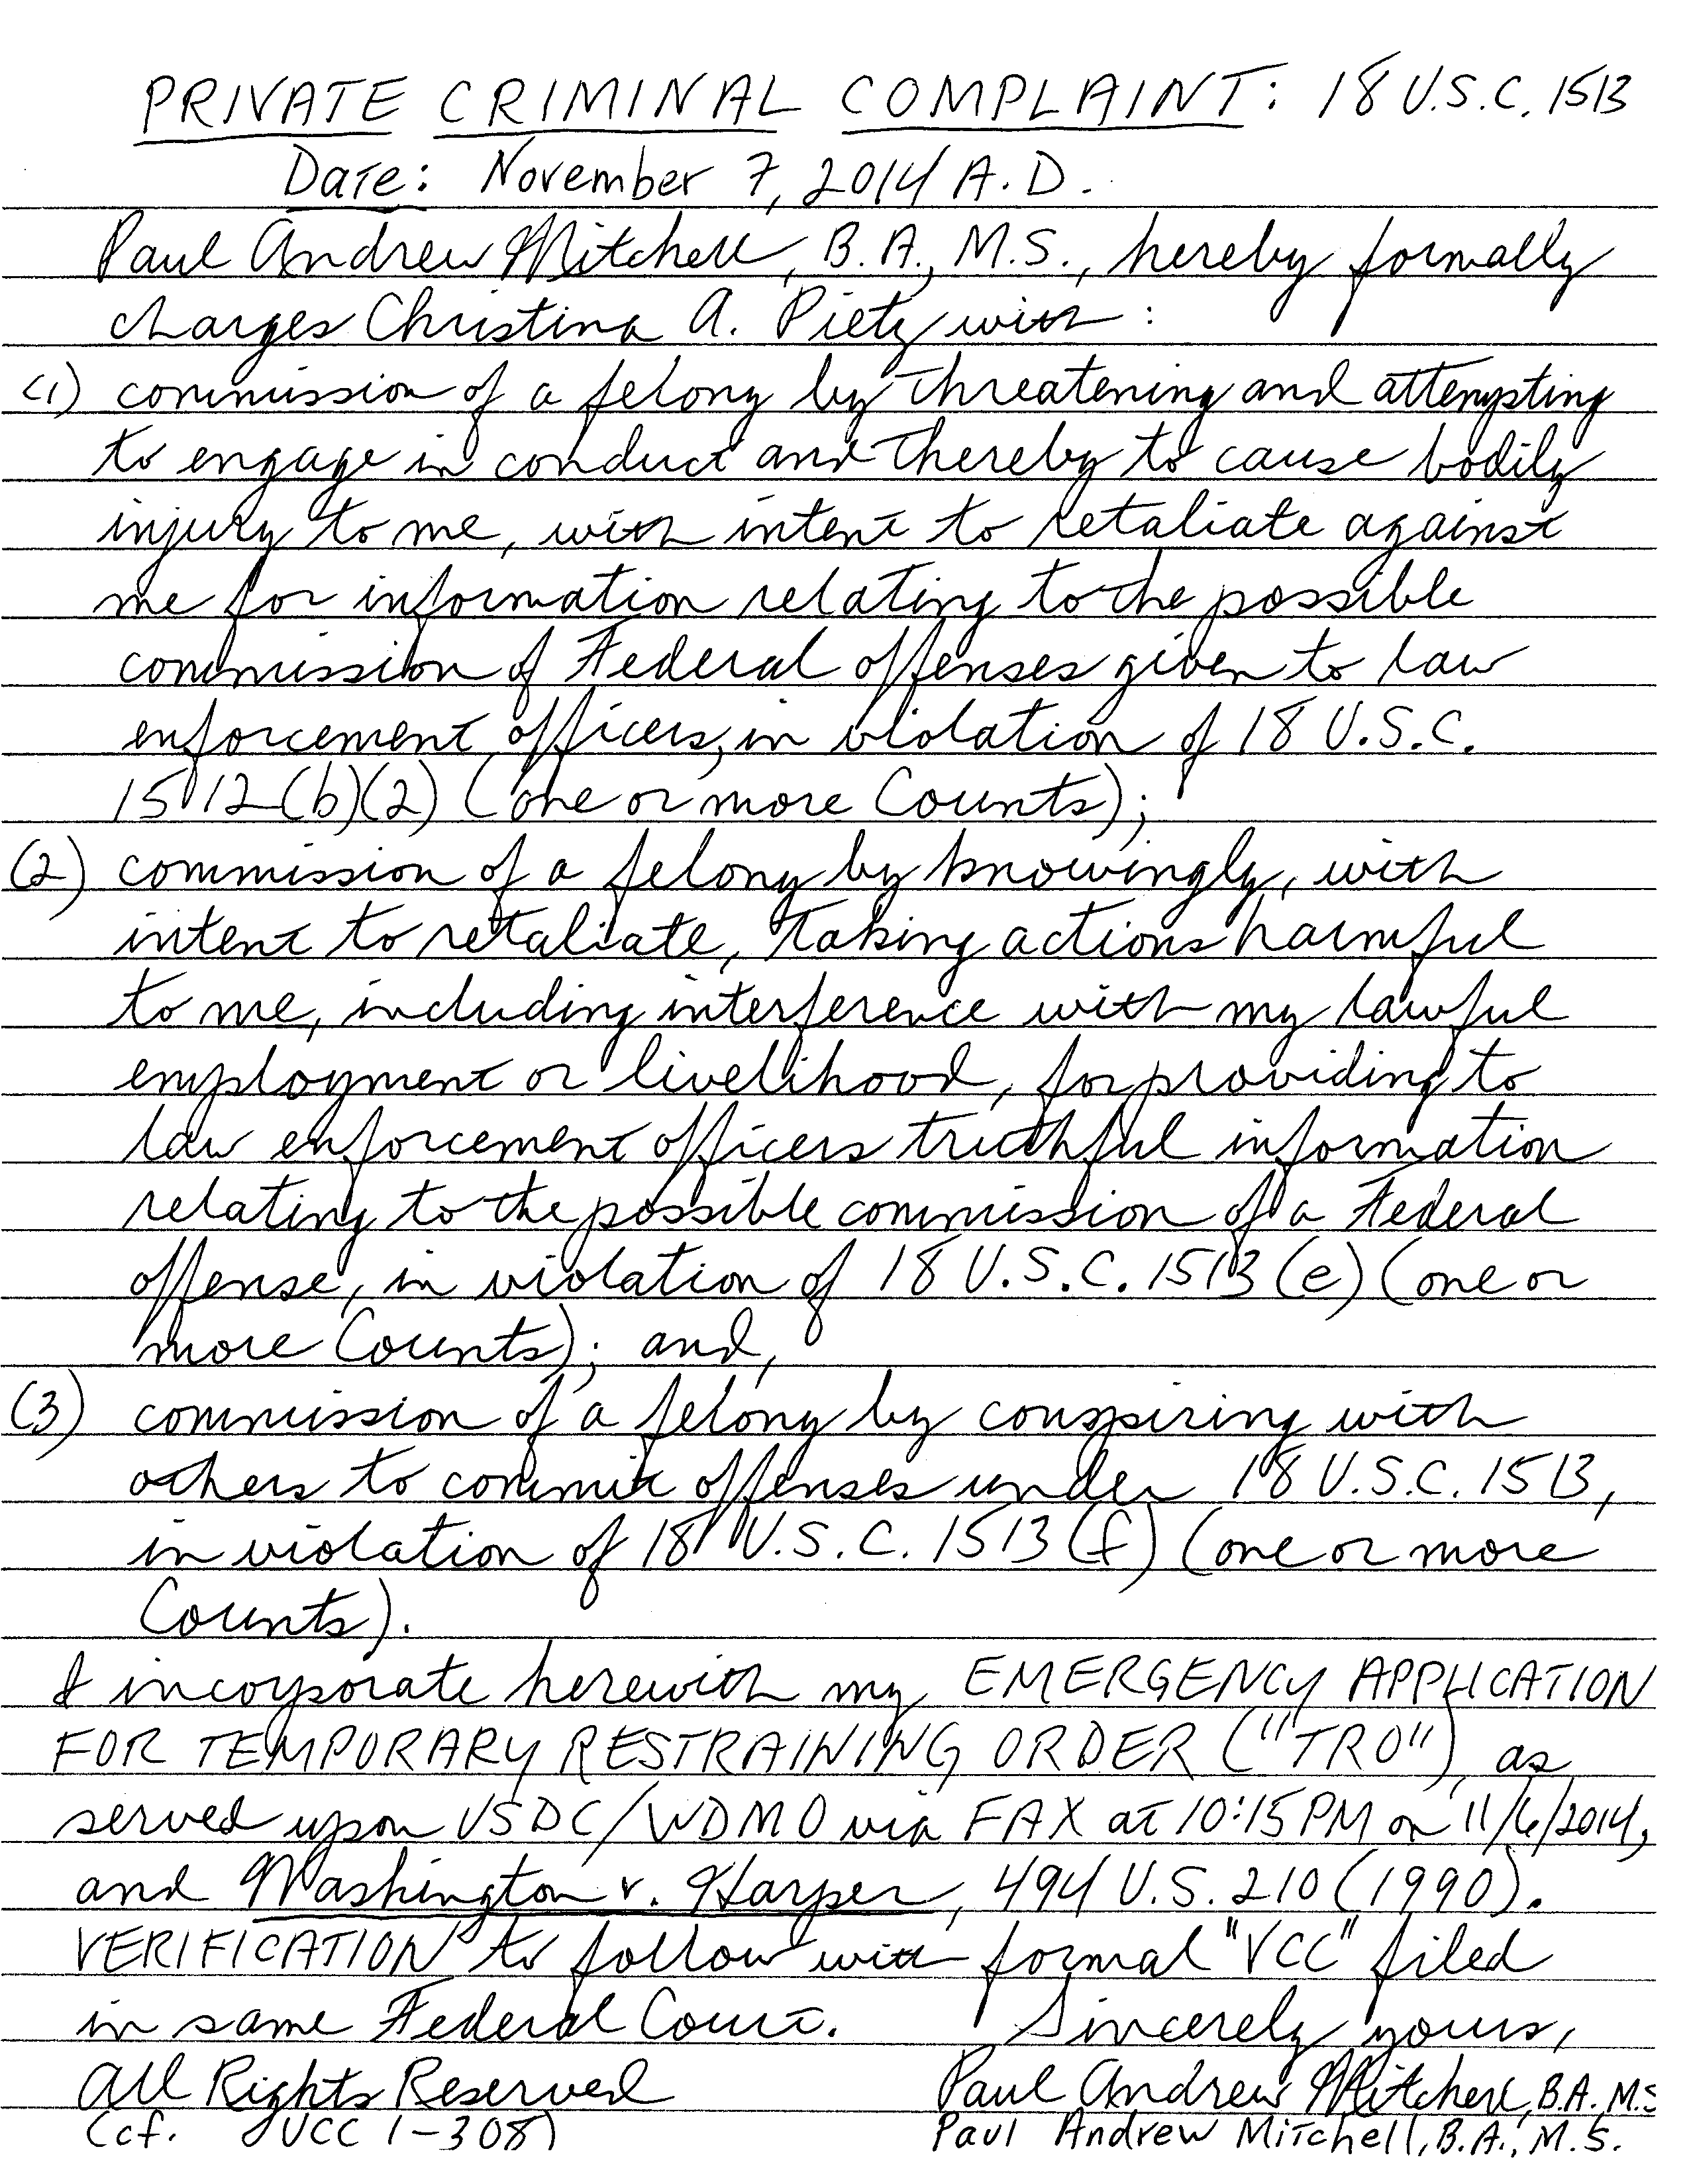 PRIVATE CRIMINAL COMPLAINT: 18 U.S.C. 1513
Date: November 7, 2014 A.D.
Paul Andrew Mitchell, B.A., M.S., hereby formally
charges Christina A. Pietz with:
(1) commission of a felony by threatening and attempting
to engage in conduct and thereby to cause bodily
injury to me, with intent to retaliate against
me for information relating to the possible
commission of Federal offenses given to law
enforcement officers, in violation of 18 U.S.C.
1512(b)(2) (one or more Counts);
(2) commission of a felony by knowingly, with
intent to retaliate, taking actions harmful
to me, including interference with my lawful
employment or livelihood, for providing to
law enforcement officers truthful information
relating to the possible commission of a Federal
offense, in violation of 18 U.S.C. 1513(e) (one or
more Counts); and,
(3) commission of a felony by conspiring with
others to commit offenses under 18 U.S.C. 1513,
in violation of 18 U.S.C. 1513(f) (one or more
Counts).
I incorporate herewith my EMERGENCY APPLICATION
FOR TEMPORARY RESTRAINING ORDER ("TRO"), as
served upon USDC/WDMO via FAX at 10:15 PM on 11/6/2014,
and Washington v. Harper, 494 U.S. 210 (1990).
VERIFICATION to follow with formal "VCC" filed
in same Federal Court. Sincerely yours,
All Rights Reserved Paul Andrew Mitchell, B.A., M.S
(cf. UCC 1-308) Paul Andrew Mitchell, B.A., M.S.